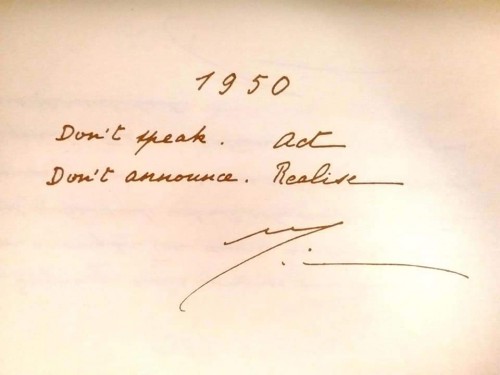 1950
Don't speak. Act
Don't announce. Realise